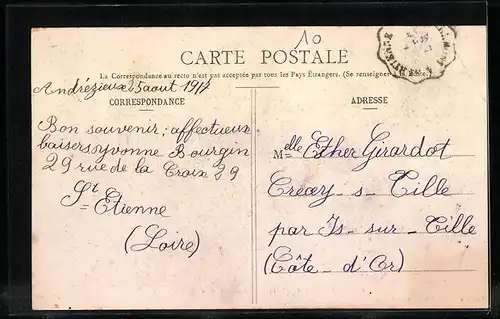 10
CARTE POSTALE
La Correspondance au recto n'est pas acceptée par tous les Pays Étrangers. (Se renseigner à la Poste.)
Andrézieux 5 aout 1914
CORRESPONDANCE
Bon souvenir; affectueux
baisers Yvonne Bourgin
29 rue de la Croix 29
St Etienne
(Loire)
ADRESSE
Melle Esther Girardot
Crecey-s-Tille
par Is-sur-Tille
(Côte-d'Or)